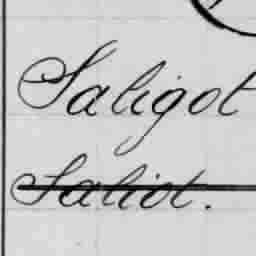 Saligot
Saliot.